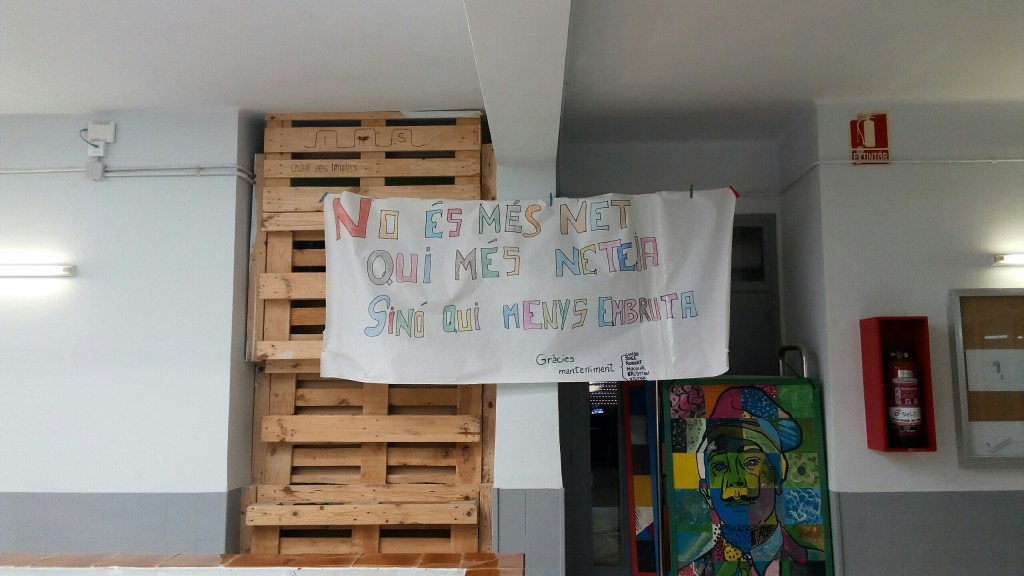 NO ÉS MÉS NET
QUI MÉS NETEJA
SINÓ QUI MENYS EMBRUTA
Gràcies
manteniment
EXTINTOR